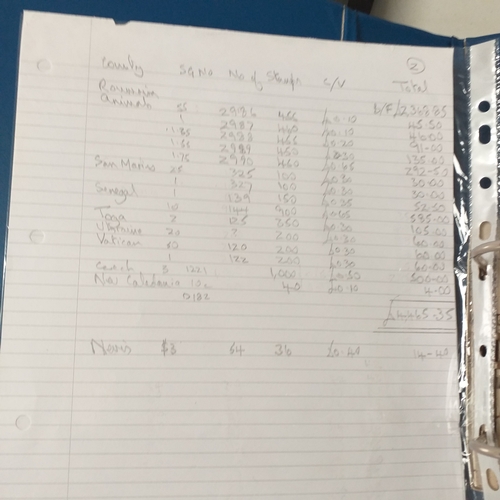 ②
Country SG No No. of Stamps C/V Total
Romanian
Animals 55 2986 455 £0.10 45.50
1 2987 460 £0.10 46.00
1.85 2988 455 £0.20 91.00
1.55 2989 450 £0.30 135.00
1.75 2990 450 £0.65 292-50
San Marino 25 325 100 £0.30 30.00
1 327 100 £0.30 30-00
Senegal 1 139 150 £0.35 52.50
10 900 £0.65 585-00
Togo 2 125 350 £0.30 105.00
Ukraine 20 ? 200 £0.30 60.00
Vatican 120 200 £0.30 60.00
1 122 200 £0.30 60-00
Czech 3 1221 1,000 £0.50 500-00
New Caledonia 40 £0.10 4.00
Nevis $3 64 36 £0.40 14-40